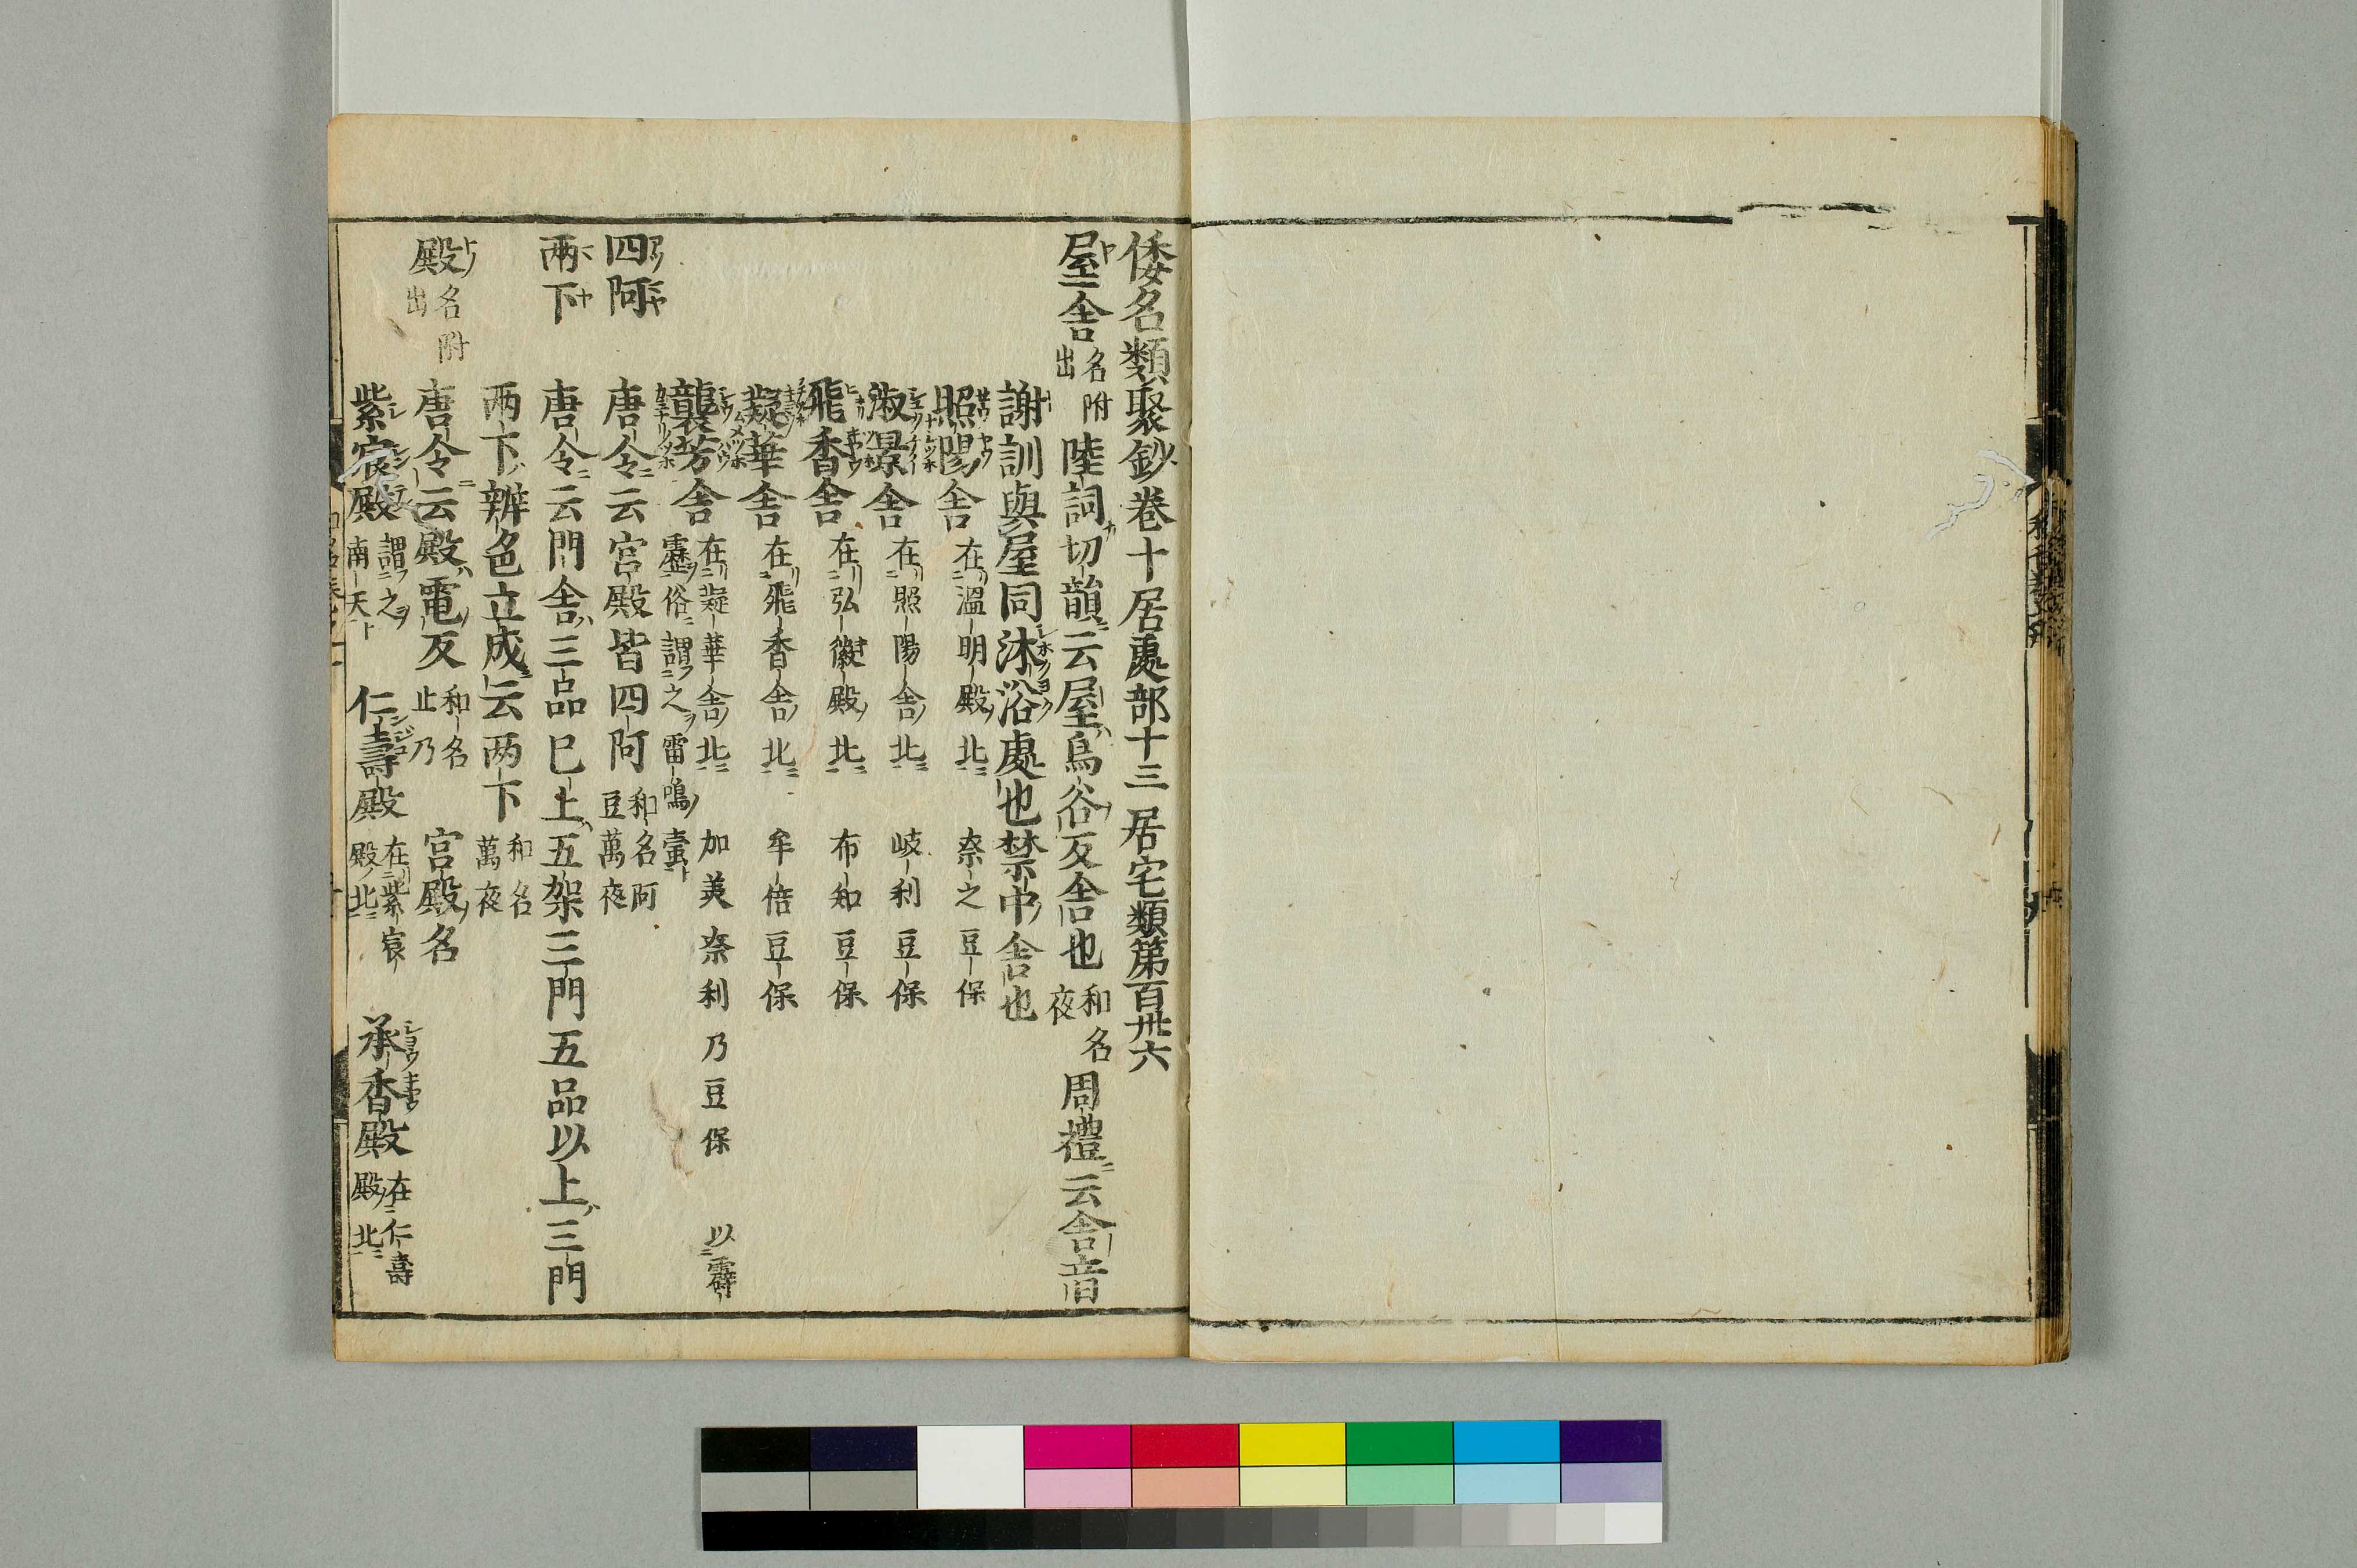 倭名類聚鈔卷十居處部十三 居宅類第百卅六
屋舎 名附出 陸詞切韻云屋烏谷反舎也 和名夜 周禮云舎音
謝訓與屋同沐浴處也禁中舎也
照陽舎 在温明殿北 奈之豆保
淑景舎 在照陽舎北 岐利豆保
飛香舎 在弘徽殿北 布知豆保
凝華舎 在飛香舎北 牟倍豆保
襲芳舎 在凝華舎北 加美奈利乃豆保 以霹靂俗謂之雷鳴壷
四阿 唐令云宮殿皆四阿 和名阿豆萬夜
兩下 唐令云門舎三品已上五架三門五品以上三門
两下辨色立成云两下 和名萬夜
殿 名附出 唐令云殿電反 和名止乃 宮殿名
紫宸殿 謂之南天 仁壽殿 在紫宸殿北 承香殿 在仁壽殿北